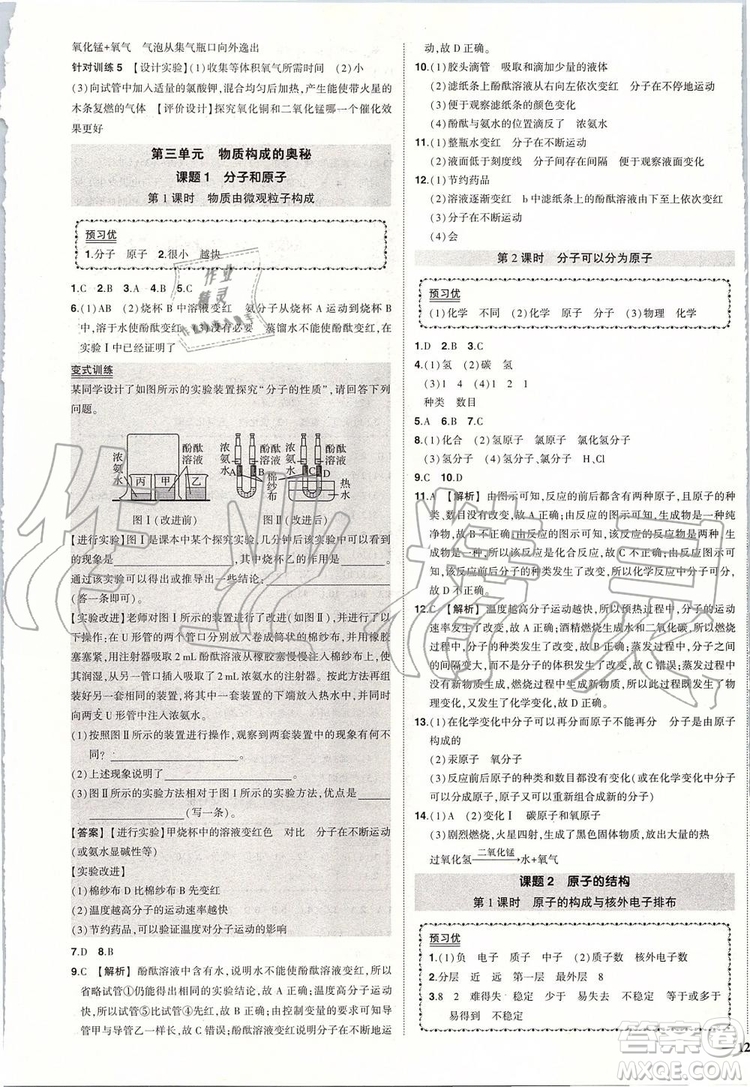 氧化锰+氧气　气泡从集气瓶口向外逸出
针对训练5　【设计实验】(1)收集等体积氧气所需时间　(2)小
(3)向试管中加入适量的氯酸钾,混合均匀后加热,产生能使带火星的
木条复燃的气体　【评价设计】探究氧化铜和二氧化锰哪一个催化效
果更好
第三单元　物质构成的奥秘
课题1　分子和原子
第1课时　物质由微观粒子构成
预习优
1.分子　原子　2.很小　越快
1.C　2.B　3.D　4.B　5.C
6.(1)AB　(2)烧杯A中的溶液变红　氨分子从烧杯B运动到烧杯A
中,溶于水使酚酞变红　(3)没有必要　蒸馏水不能使酚酞变红,在
实验Ⅰ中已经证明了
变式训练
某同学设计了如图所示的实验装置探究“分子的性质”,请回答下列
问题。
浓氨水　酚酞溶液
丙　甲　乙
图Ⅰ(改进前)
浓氨水　酚酞溶液
A　B　C　D
棉纱布　热水
图Ⅱ(改进后)
【进行实验】图Ⅰ是课本中某个探究实验,几分钟后该实验可以观察到
的现象是　　　　,其中烧杯乙的作用是　　　　。
通过该实验可以得出的结论是　　　　
(答一条即可)。
【实验改进】老师对图Ⅰ所示的装置进行了改进(如图Ⅱ),并用改进
后的装置做如下操作:在U形管的两个管口分别放入卷成筒状的棉纱布,用橡胶
塞塞紧,用注射器吸取2 mL酚酞溶液从橡胶塞慢慢注入棉纱布,将
其润湿,以同样的方法吸取2 mL浓氨水,在右端的烧杯中放入热水,并
向两支U形管中注入浓氨水。
(1)按照图Ⅱ所示的装置进行操作,观察到两个装置中的不同现象
是　　　　。
(2)上述实验说明了　　　　。
(3)图Ⅱ的实验方法相对于图Ⅰ的实验方法,其优点是　　　　
(写一条)。
【答案】【进行实验】甲烧杯中的溶液变红色　对比　分子在不断运动
(或氨水显碱性等)
【实验改进】
(1)棉纱布D比棉纱布B先变红
(2)温度越高分子运动速率越大
(3)能探究温度对分子运动的影响
7.D　8.B
9.C　【解析】酚酞溶液中含有水,通过实验②酚酞溶液不变红,所以
省略试管①仍能达到实验目的,故A正确;根据实验③④溶液变红,
所以试管⑤不能使溶液变红,故B正确;由控制变量的因素可知,在
导管甲与导管乙长度一致时,溶液变红,故C错误;氨分子在不断地运
动,故D正确。
10.(1)胶头滴管　吸取和滴加少量的液体
(2)滤纸条上的酚酞溶液从右向左依次变红　分子在不停地运动
(3)便于观察滤纸条的颜色变化
(4)酚酞与氨水的位置滴反了　浓氨水
11.(1)整瓶水变红　分子在不断运动
(2)液面低于刻度线　分子间存在间隔　便于观察液面变化
12.(1)节约药品
(2)溶液逐渐变红　b中滤纸条上的酚酞溶液变红
(3)节约药品
(4)会
第2课时　分子可以分为原子
预习优
(1)化学　不同　(2)化学　原子　(3)物理　化学
1.D　2.D　3.B
4.(1)氢　(2)碳　氢
(3)4　1　2　1
种类　数目
5.A　6.B　7.C
8.(1)化合　(2)氢原子　氯原子　氯化氢分子
(3)氢分子、氯分子　H、Cl
9.C　10.D
11.A　【解析】由图示可知,反应的前后都含有两种原子,且原子的种
类、数目没有改变,故A正确;由反应的图示可知,反应生成了一种纯
净物,故B错误;由图示可知,该反应由两种物质反应生成了一种物质,
生成的物质是化合物,故C错误;由反应的图示可知,反应前后分
子的种类发生了改变,化学性质发生了改变,故D错误。
12.C　【解析】温度越高分子运动越快,所以预热过程中,分子的运动
速率发生了改变,故A正确;酒精燃烧变成了水和二氧化碳,故
燃烧过程中,分子的种类发生了改变,故B正确;蒸发过程中,分子
的间隔变大,而不是分子的体积发生了改变,故C错误;蒸发过程中
没有新物质生成,燃烧有新物质生成,故D正确。
13.(1)在化学变化中分子可以分为原子(或分子是由原子
构成的)
(2)汞原子　氧分子
(3)反应前后原子的种类和数目没有变化(或在化学变化中分子
可以分成原子,原子重新组合成新的分子等)
14.(1)A　(2)变化Ⅰ　碳原子和氧原子
(3)剧烈燃烧,火星四射,生成黑色固体
过氧化氢 二氧化锰→ 水+氧气
课题2　原子的结构
第1课时　原子的构成与核外电子排布
预习优
1.(1)负　电子　质子　中子　(2)质子数　核外电子数
2.分层　近　远　第一层　最外层　8
3.8　2　难得失　稳定　少于　易失去　不稳定　多于或等于
易得到　不稳定
12
作业精灵
答案圈
MXQE.COM